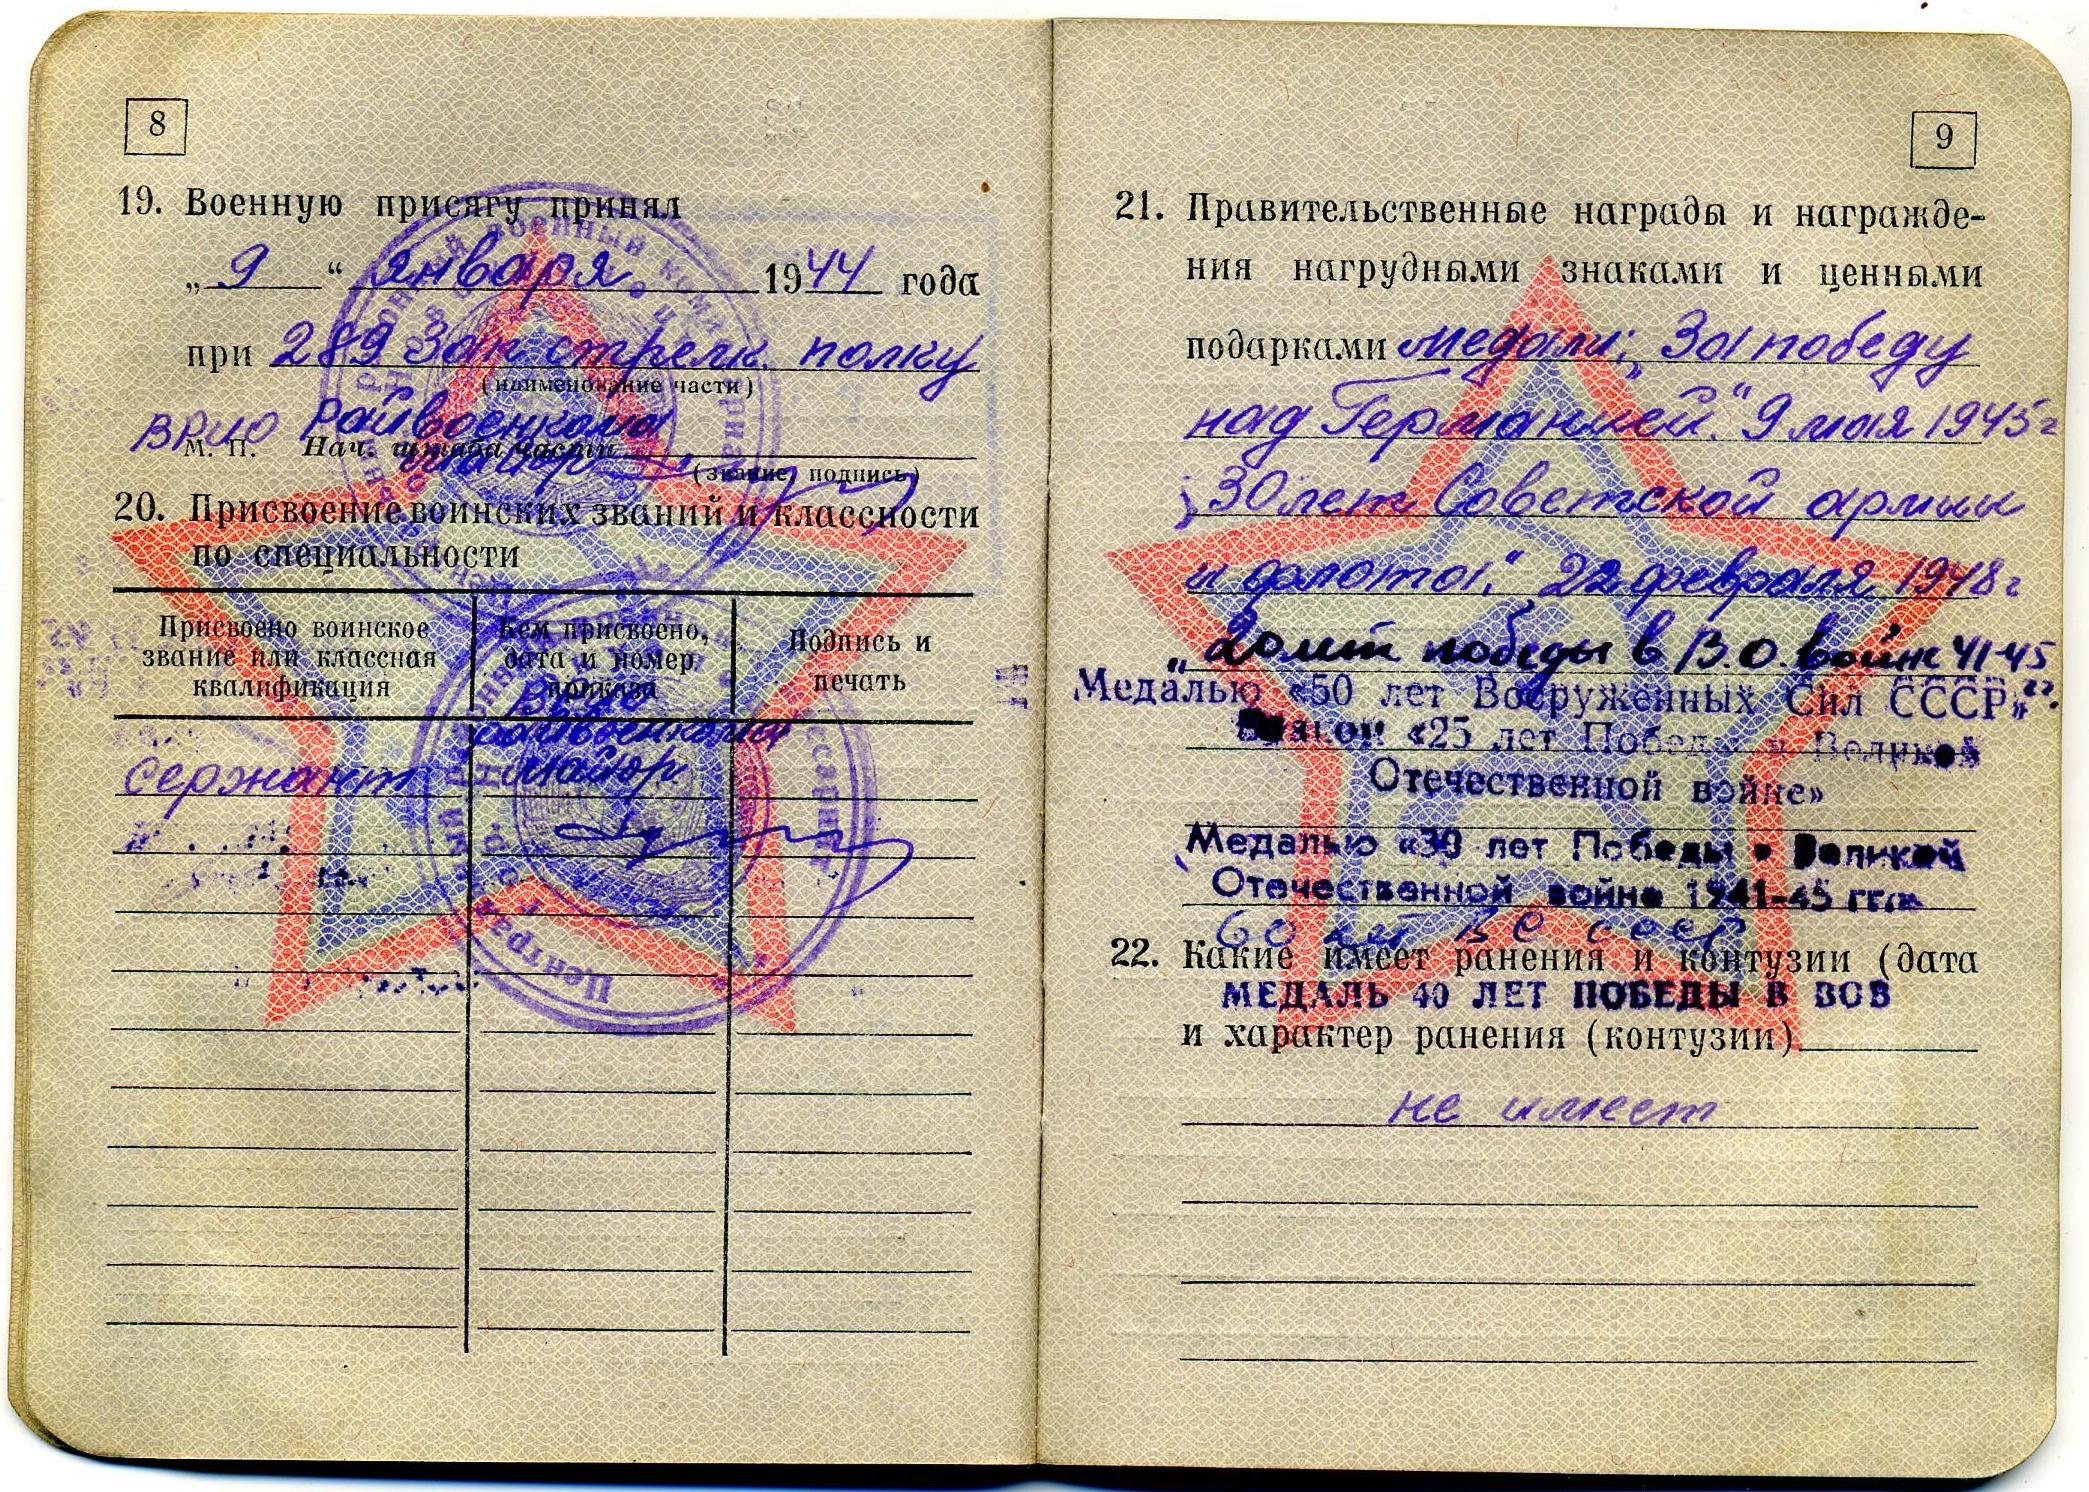 8
19. Военную присягу принял
„9“ января 1944 года
при 289 Зап стрелк. полку
(наименование части)
ВРИО Райвоенкома
М. П. Нач. штаба части
майор
(звание, подпись)
20. Присвоение воинских званий и классности
по специальности
Присвоено воинское звание или классная квалификация
Кем присвоено, дата и номер приказа
Подпись и печать
ВРИО
райвоенкома
сержант майор
Центра
9
21. Правительственные награды и награжде-
ния нагрудными знаками и ценными
подарками медали; „За победу
над Германией.“ 9 мая 1945г
„30 лет Советской армии
и флота“. 22 февраля 1948г
„20 лет победы в В.О.войне 41-45
Медалью «50 лет Вооруженных Сил СССР»
Знаком «25 лет Победы в Великой
Отечественной войне»
Медалью «30 лет Победы в Великой
Отечественной войне 1941-45 гг.»
60 лет ВС СССР
22. Какие имеет ранения и контузии (дата
МЕДАЛЬ 40 ЛЕТ ПОБЕДЫ В ВОВ
и характер ранения (контузии)
не имеет